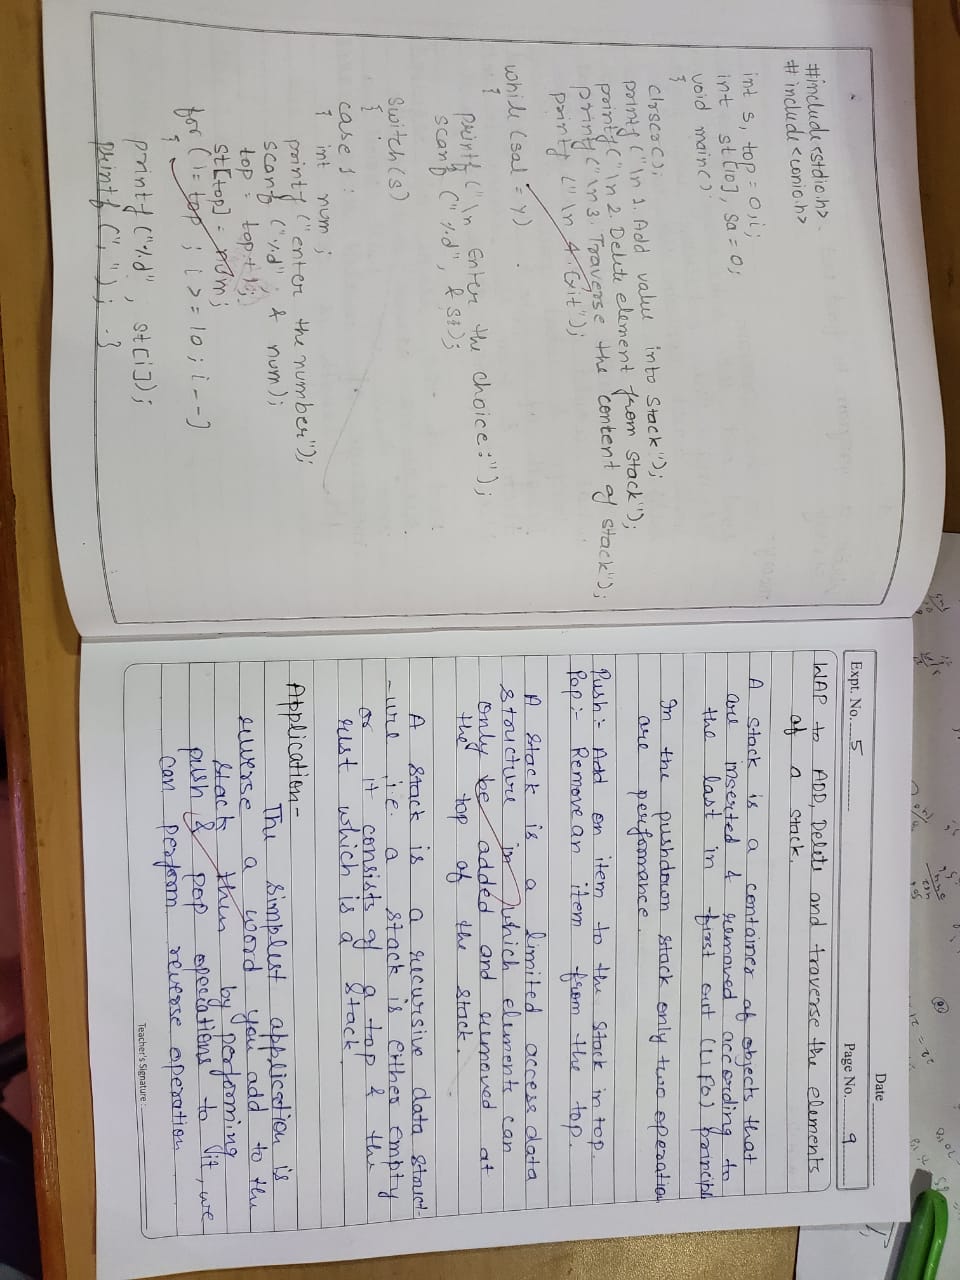 #include<stdio.h>
#include<conio.h>
int s, top=0,i;
int st[10], sa=0;
void main()
{
clrscr();
printf("\n 1. Add value into stack");
printf("\n 2. Delete element from stack");
printf("\n 3. Traverse the content of stack");
printf("\n 4. Exit");
while (sal = y)
{
printf("\n Enter the choice:");
scanf("%d", & st);
switch(s)
{
case 1:
{ int num;
printf("enter the number");
scanf("%d", & num);
top = top+1;
st[top] = num;
for (i=top; i>=10; i--)
{
printf("%d", st[i]);
printf(","); }
Date
Expt. No. 5
Page No. 9
WAP to ADD, Delete and traverse the elements
of a stack.
A stack is a container of objects that
are inserted & removed according to
the last in first out (LIFO) principle
In the pushdown stack only two operation
are performance.
Push:- Add on item to the stack in top.
Pop:- Remove an item from the top.
A stack is a limited access data
structure in which elements can
only be added and removed at
the top of the stack.
A stack is a recursive data struct-
-ure i.e. a stack is either empty
or it consists of a top & the
rust which is a stack.
Application-
The simplest application is
reverse a word you add to the
stack then by performing
push & pop operations to it, we
can perfom reverse operation
Teacher's Signature: